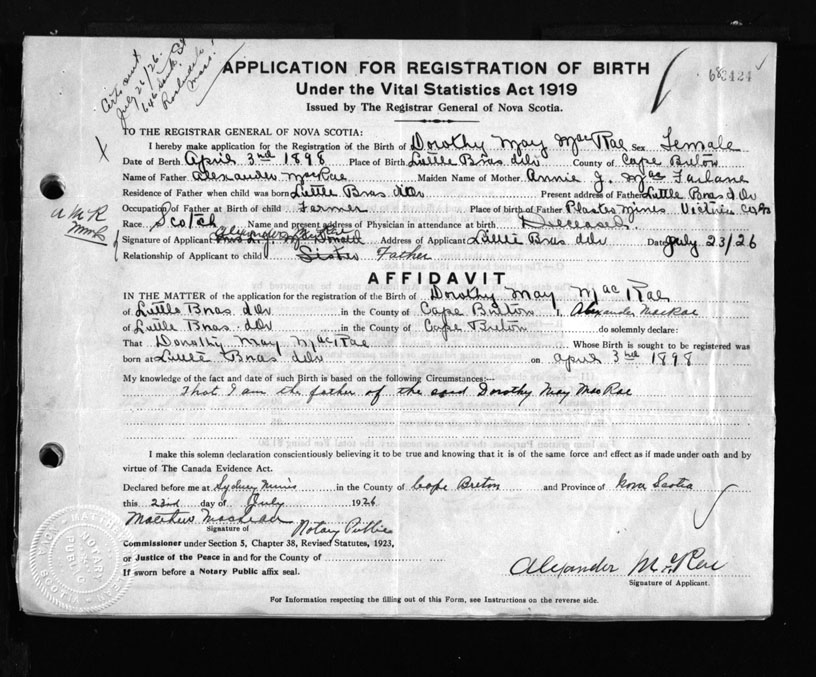 Certs sent
July 26/26.
646 South St
Roslindale
Mass.
68424
APPLICATION FOR REGISTRATION OF BIRTH
Under the Vital Statistics Act 1919
Issued by The Registrar General of Nova Scotia.
TO THE REGISTRAR GENERAL OF NOVA SCOTIA:
I hereby make application for the Registration of the Birth of Dorothy May MacRae Sex Female
Date of Berth April 3rd 1898 Place of Birth Little Bras d'Or County of Cape Breton
Name of Father Alexander MacRae Maiden Name of Mother Annie J. MacFarlane
Residence of Father when child was born Little Bras d'Or Present address of Father Little Bras d'Or
Occupation of Father at Birth of child Farmer Place of birth of Father Plaster Mines Victoria Co
A McR
Race Scotch Name and present address of Physician in attendance at birth Deceased
Alexander MacRae
Signature of Applicant Address of Applicant Little Bras d'Or Date July 23/26
Relationship of Applicant to child Sister Father
AFFIDAVIT
IN THE MATTER of the application for the registration of the Birth of Dorothy May MacRae
of Little Bras d'Or in the County of Cape Breton I, Alexander MacRae
of Little Bras d'Or in the County of Cape Breton do solemnly declare:
That Dorothy May MacRae Whose Birth is sought to be registered was
born at Little Bras d'Or on April 3rd 1898
My knowledge of the fact and date of such Birth is based on the following Circumstances:—
That I am the father of the said Dorothy May MacRae
I make this solemn declaration conscientiously believing it to be true and knowing that it is of the same force and effect as if made under oath and by
virtue of The Canada Evidence Act.
Declared before me at Sydney Mines in the County of Cape Breton and Province of Nova Scotia
this 23rd day of July 1926
Matthew
Signature of Notary Public
Commissioner under Section 5, Chapter 38, Revised Statutes, 1923,
or Justice of the Peace in and for the County of
If sworn before a Notary Public affix seal.
Alexander McRae
Signature of Applicant.
For Information respecting the filling out of this Form, see Instructions on the reverse side.